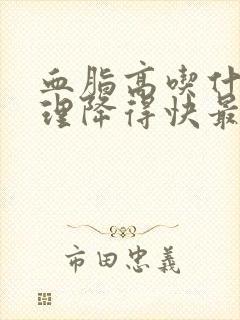 血脂高喫什
理降得快最
市田忠義